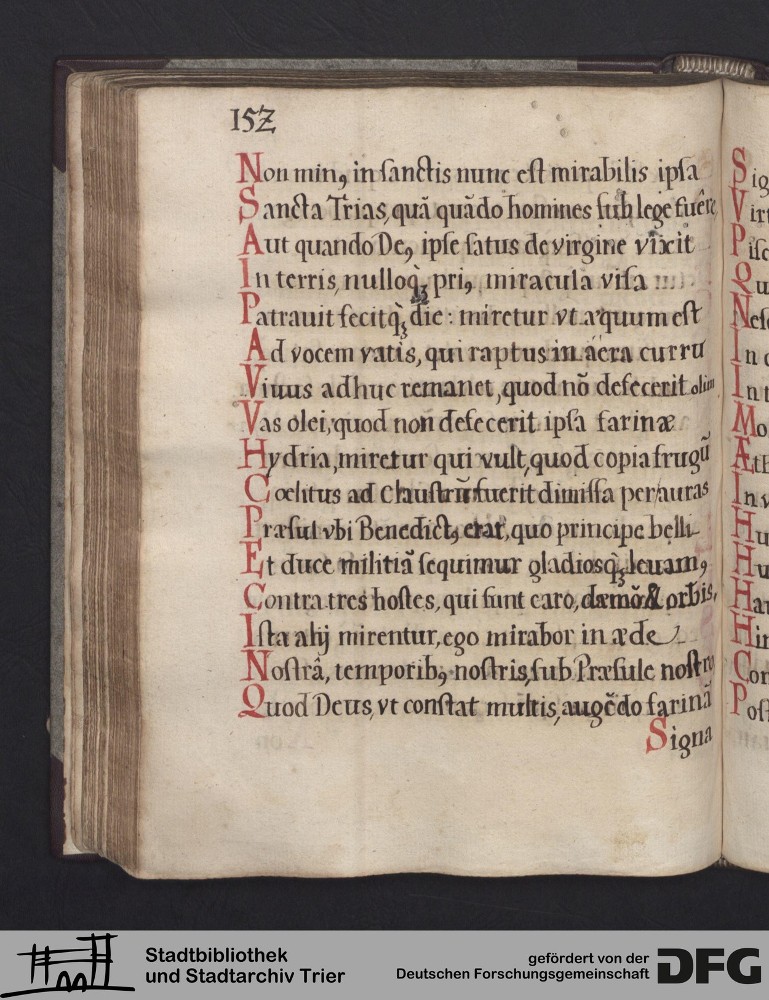 152
Non minꝰ in sanctis nunc est mirabilis ipsa
Sancta Trias, quā quādo homines sub lege fuêre
Aut quando Deꝰ ipse satus de virgine vixit
In terris, nulloq̀ꝫ priꝰ miracula visa
Patrauit fecitq̀ꝫ die: miretur vt æquum est
Ad vocem vatis, qui raptus in aëra curru
Viuus adhuc remanet, quod nō defecerit olim
Vas olei, quod non defecerit ipsa farinæ
Hydria, miretur qui vult, quod copia frugū
Cœlitus ad Claustrū fuerit dimissa per auras
Præsul vbi Benedictꝰ erat, quo principe belli
Et duce militiā sequimur gladiosq̀ꝫ leuamꝰ
Contra tres hostes, qui sunt caro, dæmō & orbis,
Ista alij mirentur, ego mirabor in æde
Nostrâ, temporibꝰ nostris, sub Præsule nostro
Quod Deus, vt constat multis, augēdo farinā
Signa
Sig
Virt
Pisc
Qu
Nesc
In
In
Mo
Æth
In
Hu
Hu
Hau
Hin
Con
Post
Stadtbibliothek
und Stadtarchiv Trier
gefördert von der
Deutschen Forschungsgemeinschaft
DFG